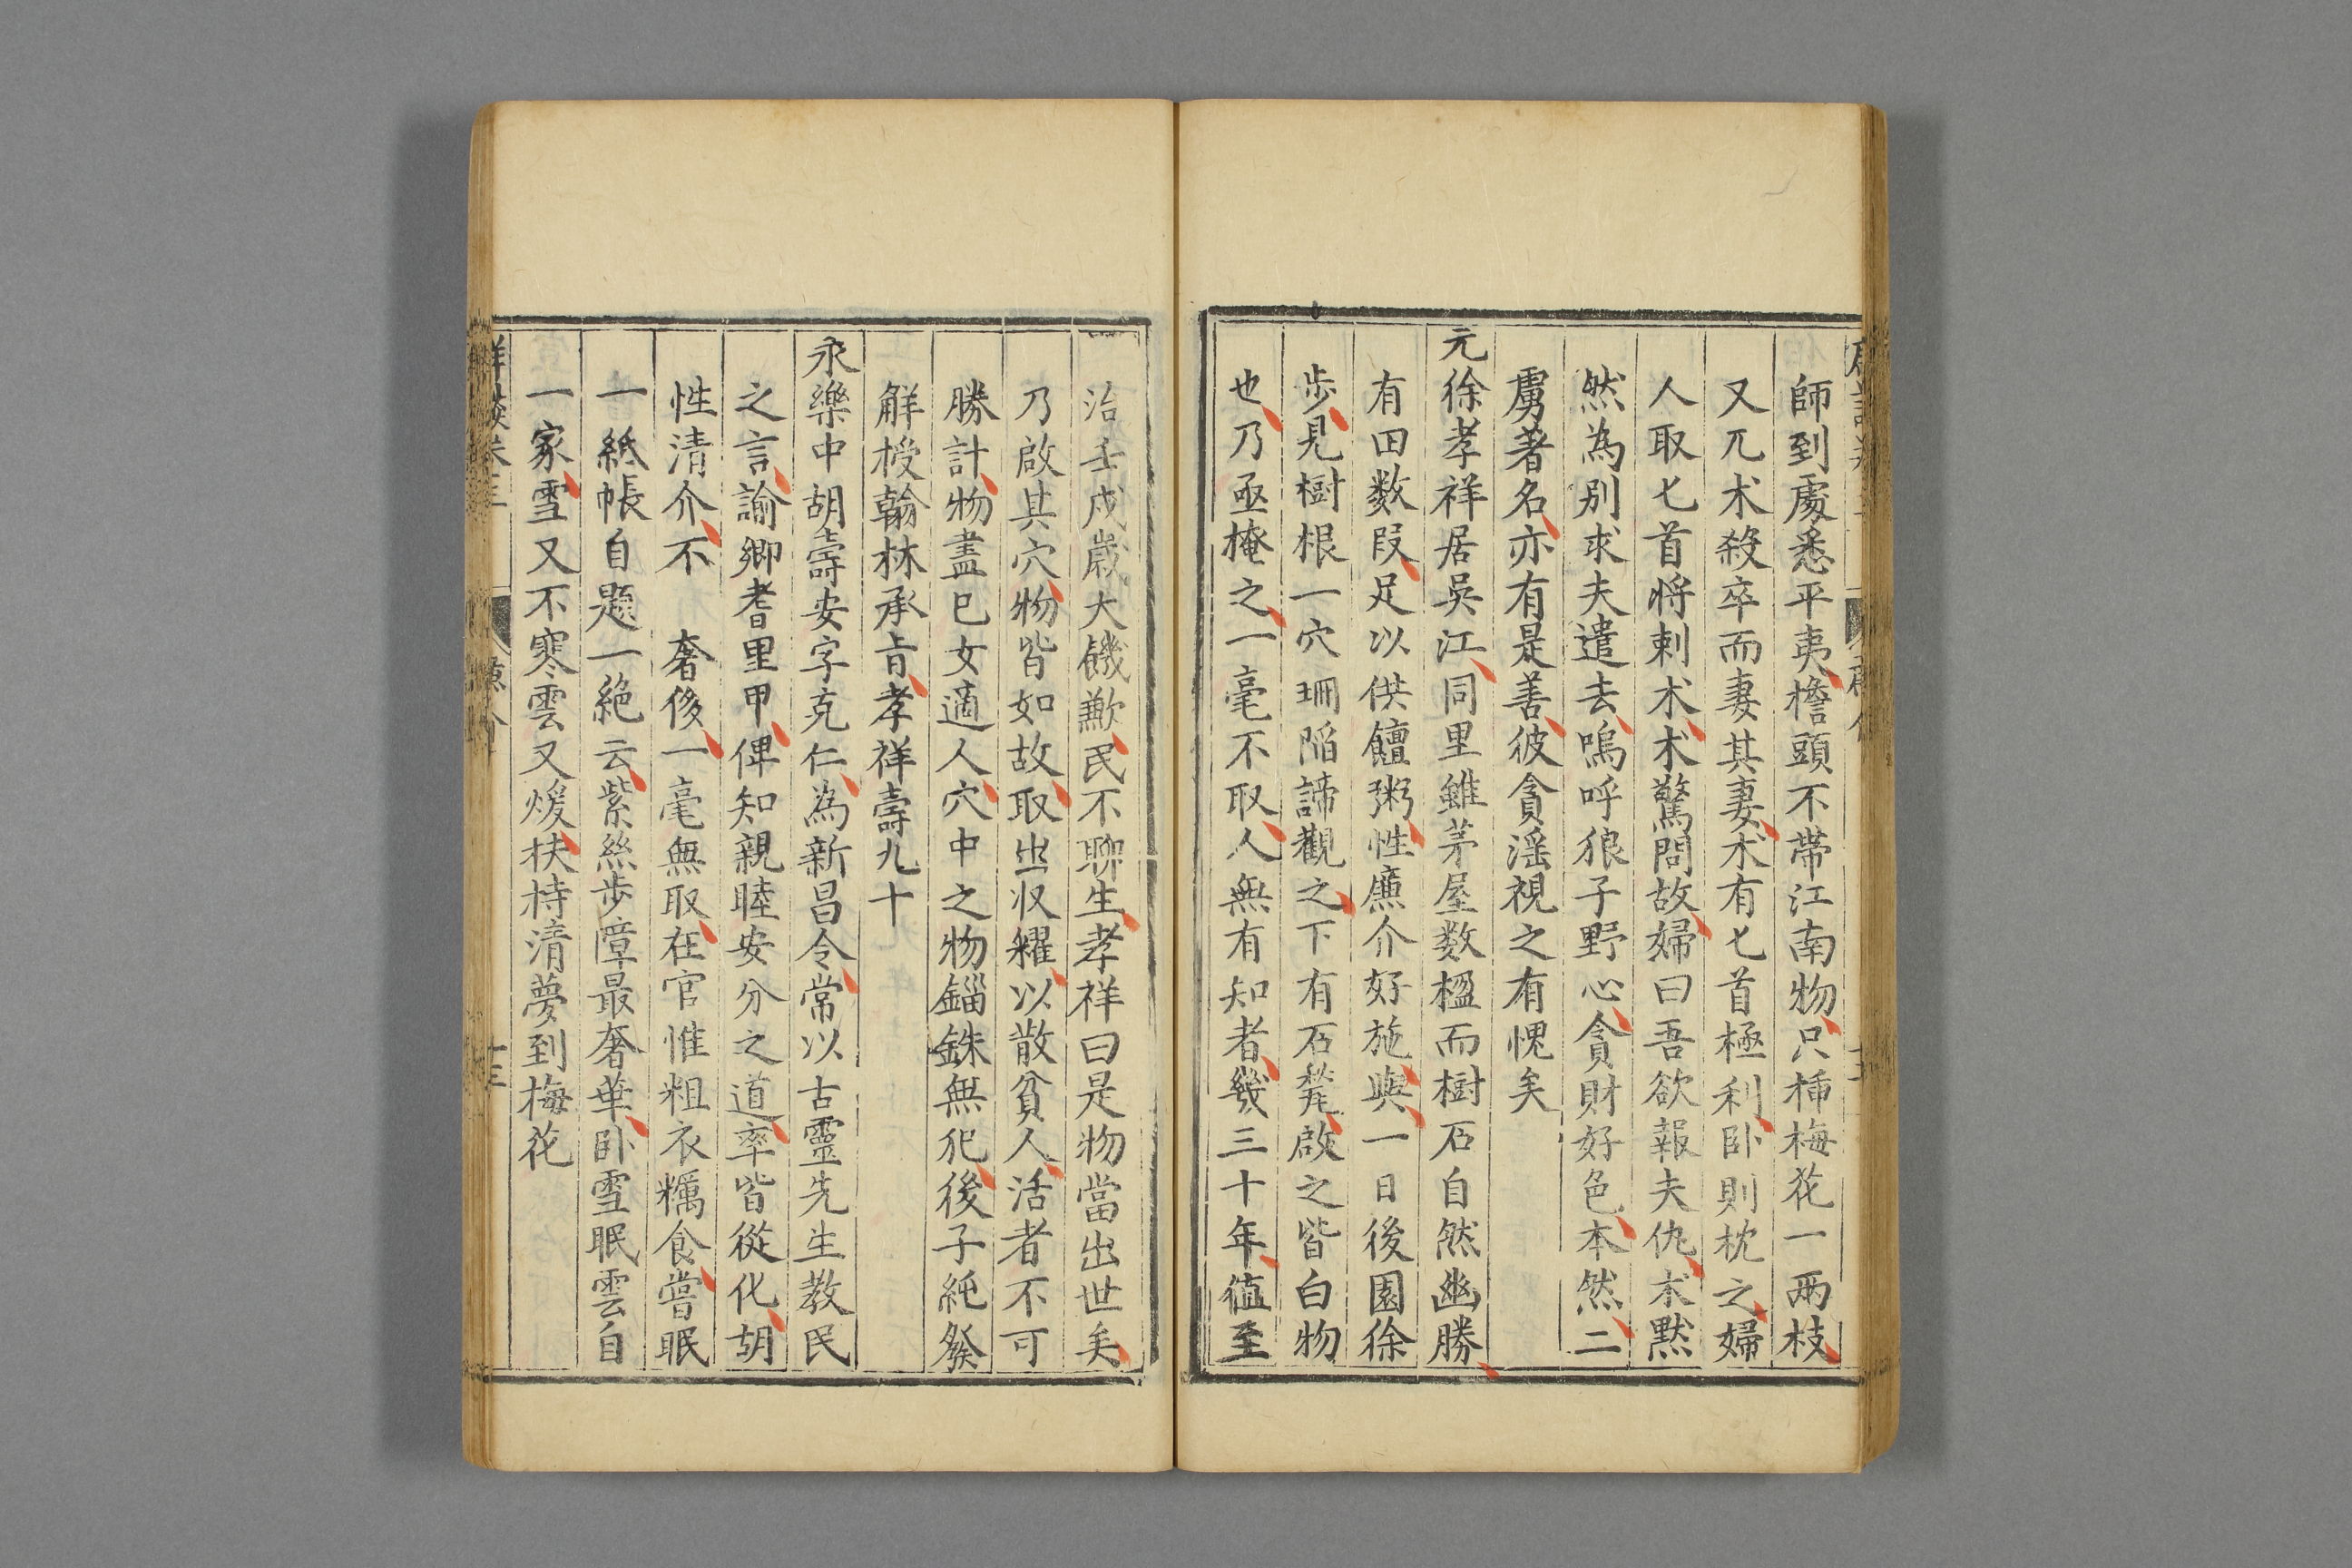 師到處悉平夷檐頭不帶江南物只揷梅花一兩枝
又兀术殺卒而妻其妻术有匕首極利卧則枕之婦
人取匕首將刺术术驚問故婦曰吾欲報夫仇术黙
然為别求夫遣去嗚呼狼子野心貪財好色本然二
虜著名亦有是善彼貪滛視之有愧矣
元徐孝祥居吳江同里雖茅屋数楹而樹石自然幽勝
有田数段足以供饘粥性㢘介好施與一日後園徐
歩見樹根一穴坍陷諦觀之下有石甃啟之皆白物
也乃亟掩之一毫不取人無有知者幾三十年值至
治壬戌歳大饑歉民不聊生孝祥曰是物當出世矣
乃啟其穴物皆如故取出収糴以散貧人活者不可
勝計物盡已女適人穴中之物錙銖無犯後子純發
解授翰林承旨孝祥壽九十
永樂中胡壽安字克仁為新昌令常以古靈先生教民
之言諭鄉耆里甲俾知親睦安分之道率皆從化胡
性清介不奢侈一毫無取在官惟粗衣糲食嘗眠
一紙帳自題一絶云紫絲歩障最奢華卧雪眠雲自
一家雪又不寒雲又煖扶持清夢到梅花
十三